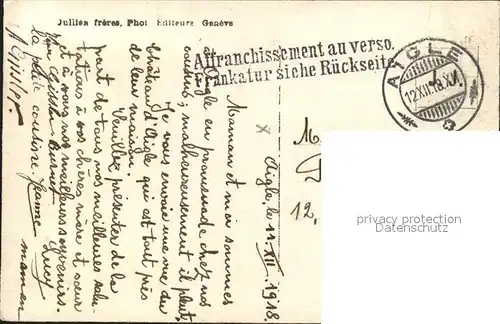 Jullien frères, Phot Editeurs Genève
Affranchissement au verso.
Frankatur siehe Rückseite
AIGLE
12.XII.18.XV.
Aigle, le 11-XII-1918
Maman et moi sommes
à Aigle en promenade chez nos
cousins; malheureusement il pleut.
Je vous envoie une vue du
Château d'Aigle qui est tout près
de leur maison.
Veuillez présenter de la
part de tous nos meilleures salu-
tations à vos chères mère et sœur
et à vous nos meilleurs souvenirs.
Lucy
la petite cousine Jeanne
maman
M
12.
privacy protection
www.oldthing.com